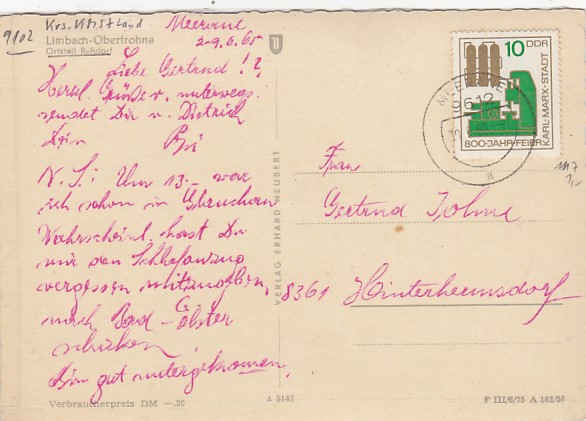 9102 Krs. Hhst. Land
Limbach-Oberfrohna
Ortsteil Rußdorf
Meerane
2-9.6.65
Liebe Gertrud!
Herzl. Grüße v. unterwegs
sendet Dir u. Dietrich
Dein
N.S.: Um 13.- war
ich schon in
Wahrscheinl. hast Du
mir den Schlafanzug
vergessen mitzugeben,
nach Bad-Elster
schicken
Bin gut untergekommen.
Verbraucherpreis DM —,20
VERLAG ERHARD NEUBERT
A 5143
10 DDR
KARL-MARX-STADT
800-JAHR-FEIER
MEERANE
612
a
Frau
Gertrud Tohme
8361 Hinterhermsdorf
F III/6/75 A 162/58